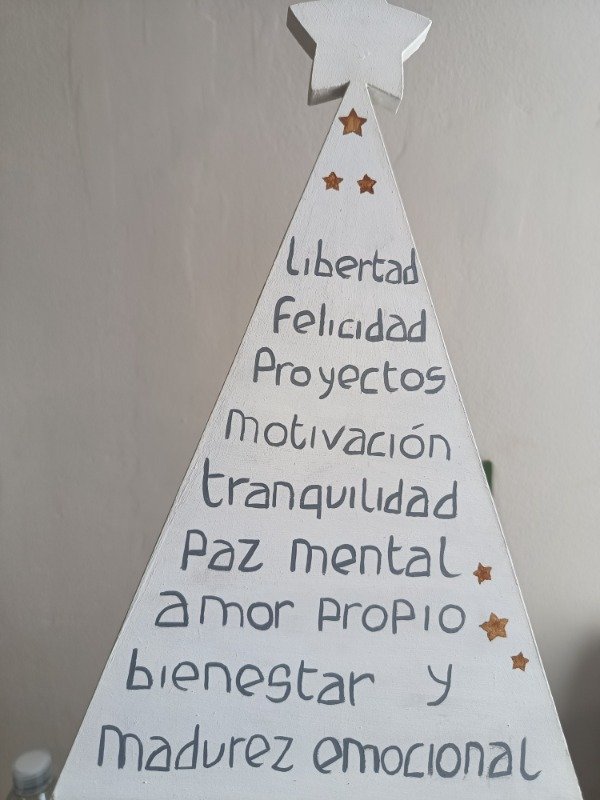 libertad
Felicidad
Proyectos
motivación
tranquilidad
Paz mental
amor propio
bienestar y
madurez emocional